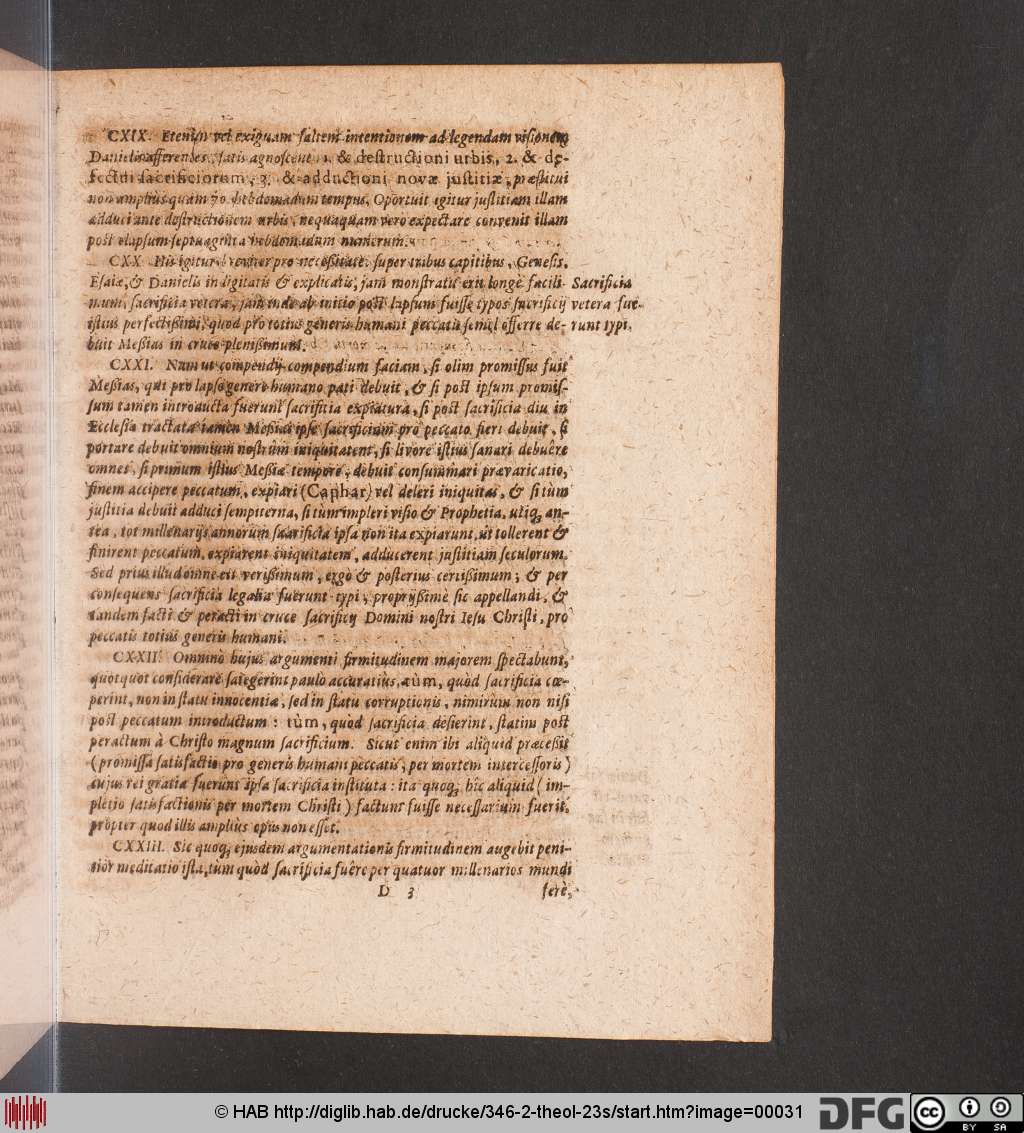 CXIX. Etenim vel exiguam saltem intentionem ad legendam visionem
Danielis afferentes, satis agnoscent 1. & destructioni urbis, 2. & de-
fectui sacrificiorum, 3. & adductioni novæ justitiæ, præstitui
non amplius quam 70. hebdomadum tempus. Oportuit igitur justitiam illam
adduci ante destructionem urbis, nequaquam vero expectare convenit illam
post elapsum septuaginta hebdomadum numerum.
CXX. His igitur breviter pro necessitate super tribus capitibus, Genesis,
Esaiæ, & Danielis indigitatis & explicatis, jam monstratu erit longè facili-
num, sacrificia vetera, jam inde ab initio post lapsum fuisse typos sacrificij
istius perfectissimi, quod pro totius generis humani peccatis semel offerre de-
buit Messias in cruce plenissimum.
Sacrificia
vetera fue-
runt typi.
CXXI. Nam ut compendij compendium faciam, si olim promissus fuit
Messias, qui pro lapso genere humano pati debuit, & si post ipsum promis-
sum tamen introducta fuerunt sacrificia expiatura, si post sacrificia diu in
Ecclesia tractata tamen Messias ipse sacrificium pro peccato fieri debuit, si
portare debuit omnium nostrùm iniquitatem, si livore istius sanari debuêre
omnes, si primum istius Messiæ tempore, debuit consummari prævaricatio,
finem accipere peccatum, expiari (Caphar) vel deleri iniquitas, & si tùm
justitia debuit adduci sempiterna, si tùm impleri visio & Prophetia, utiq; an-
tea, tot millenarijs annorum sacrificia ipsa non ita expiarunt, ut tollerent &
finirent peccatum, expiarent iniquitatem, adducerent justitiam seculorum.
Sed prius illud omne est verissimum, ergò & posterius certissimum; & per
consequens sacrificia legalia fuerunt typi, proprijssimè sic appellandi, &
tandem facti & peracti in cruce sacrificij Domini nostri Iesu Christi, pro
peccatis totius generis humani.
CXXII. Omninò hujus argumenti firmitudinem majorem spectabunt,
quotquot considerare sategerint paulo accuratius, tùm, quòd sacrificia cœ-
perint, non in statu innocentiæ, sed in statu corruptionis, nimirùm non nisi
post peccatum introductum: tùm, quòd sacrificia desierint, statim post
peractum à Christo magnum sacrificium. Sicut enim ibi aliquid præcessit
(promissa satisfactio pro generis humani peccatis, per mortem intercessoris)
cujus rei gratia fuerunt ipsa sacrificia instituta: ita quoq; hîc aliquid (im-
pletio satisfactionis per mortem Christi) factum fuisse necessarium fuerit,
propter quod illis ampliùs opus non esset.
CXXIII. Sic quoq; ejusdem argumentationis firmitudinem augebit peni-
tior meditatio ista, tum quòd sacrificia fuêre per quatuor millenarios mundi
D 3 ferè,
© HAB http://diglib.hab.de/drucke/346-2-theol-23s/start.htm?image=00031
DFG
cc
BY SA